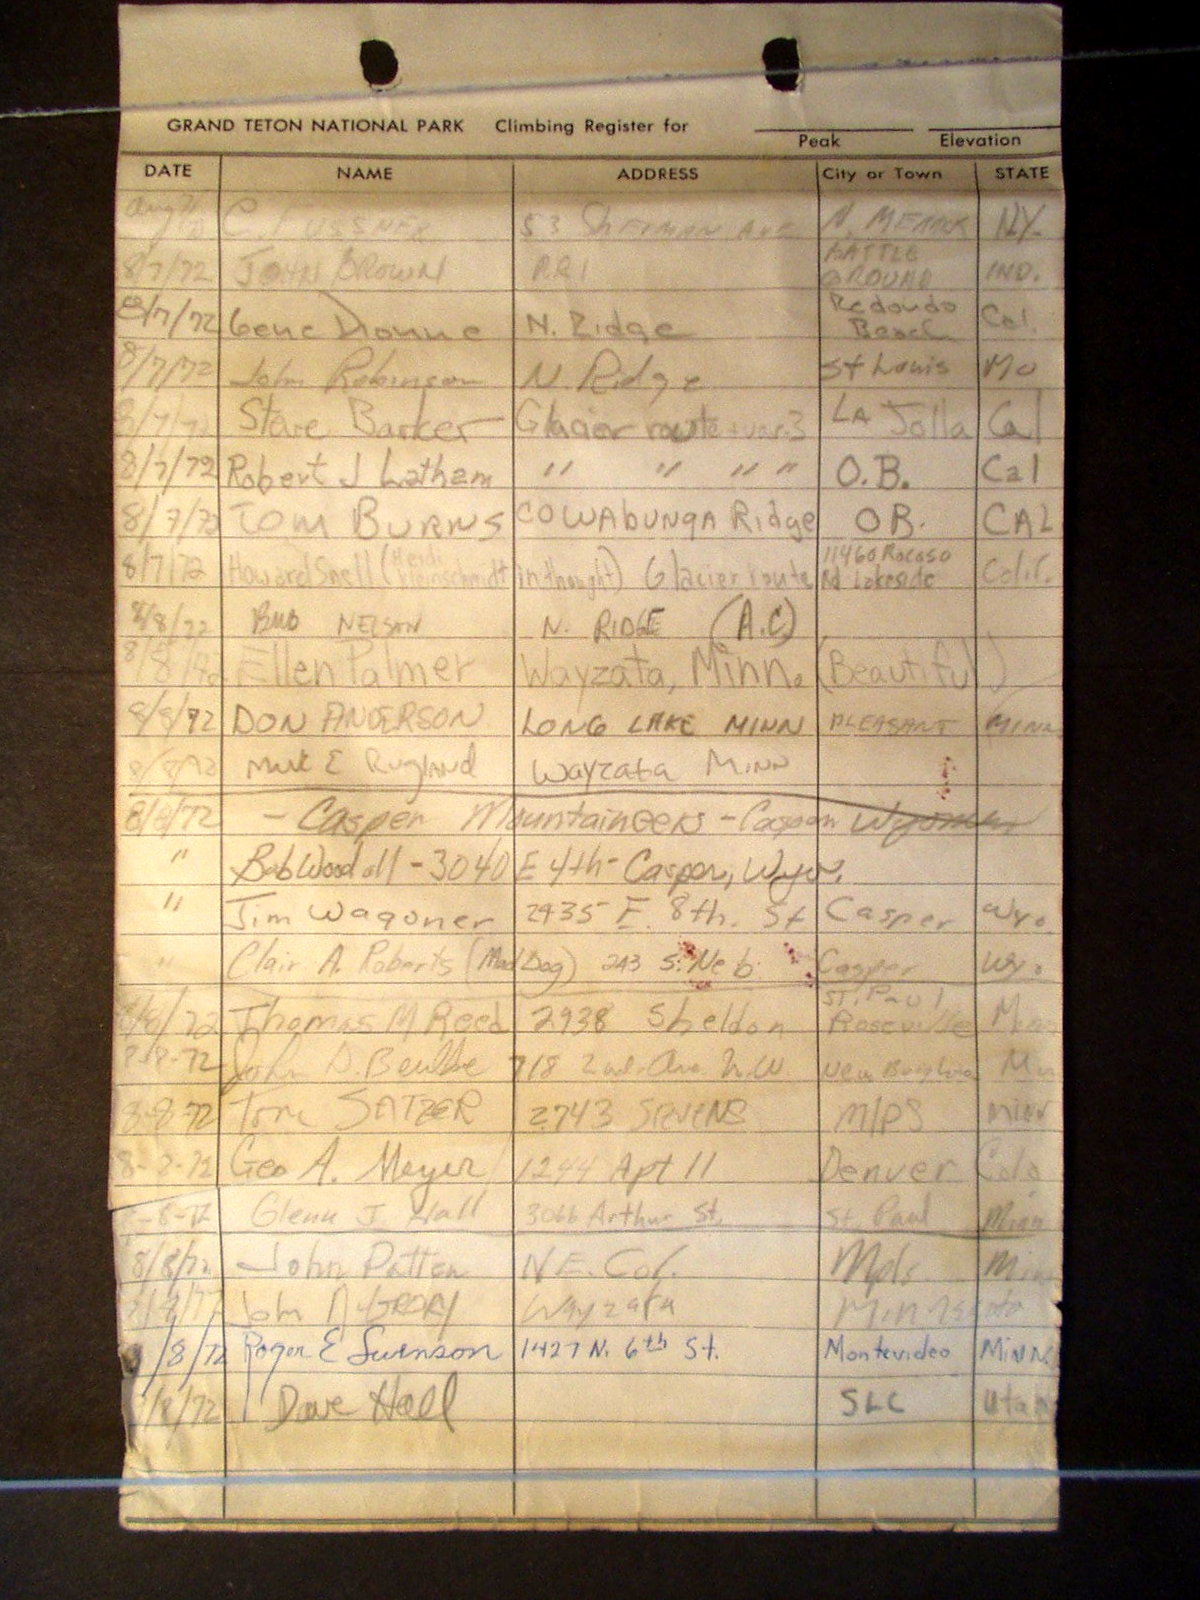 GRAND TETON NATIONAL PARK Climbing Register for
Peak Elevation
DATE NAME ADDRESS City or Town STATE
Aug 53 Sherman Ave N. NY.
8/7/72 JOHN BROWN R.R.1 BATTLE GROUND IND.
8/7/72 Gene Dionne N. Ridge Redondo Beach Cal.
8/7/72 John Robinson N. Ridge St Louis Mo
8/7/72 Steve Barker Glacier route var. 3 LA Jolla Cal
8/7/72 Robert J Latham " " " " O.B. Cal
8/7/72 TOM BURNS COWABUNGA Ridge OB. CAL
8/7/72 Howard Snell (Heidi Kleinschmidt in thought) Glacier route 11460 Rocoso Rd Lakeside Calif.
8/8/72 BUB NELSON N. RIDGE (A.C)
8/8/72 Ellen Palmer Wayzata, Minn. (Beautiful)
8/8/72 DON ANDERSON LONG LAKE MINN PLEASANT (MINN
8/8/72 E Rugland Wayzata MINN
8/8/72 - Casper Mountaineers - Casper Wyoming
" Bob Woodall - 3040 E 4th - Casper, Wyo.
" Jim Wagoner 2435 E. 8th. St Casper Wyo.
" Clair A. Roberts (Mad Dog) 243 S. Neb. Casper Wy.
8/8/72 Thomas M Reed 2938 Sheldon ST. PAUL Roseville Minn
8-8-72 John D. 718 2nd. Ave. N.W. New Brighton Mn
8-8-72 Tom SATZER 2743 STEVENS M/PS MINN
8-8-72 Geo A. Meyer 1244 Apt 11 Denver Colo
8-8-72 Glenn J. Hall 3066 Arthur St. St. Paul Minn
8/8/72 John Patten N.E. Col. Mpls. Minn
8/8/72 John Wayzata Minnesota
8/8/72 Roger E Swenson 1427 N. 6th St. Montevideo MINN.
8/8/72 Dave Hall SLC Utah